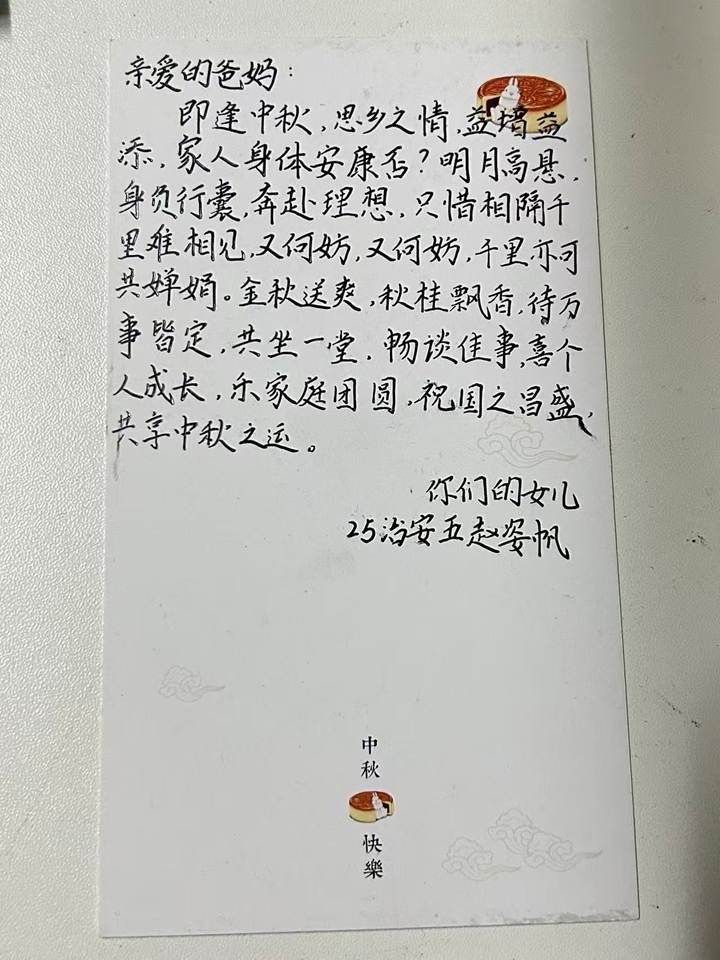 亲爱的爸妈：
即逢中秋，思乡之情，益增益
添，家人身体安康否？明月高悬，
身负行囊，奔赴理想，只惜相隔千
里难相见，又何妨，又何妨，千里亦可
共婵娟。金秋送爽，秋桂飘香，待万
事皆定，共坐一堂，畅谈佳事，喜个
人成长，乐家庭团圆，祝国之昌盛，
共享中秋之运。
你们的女儿
25治安五赵姿帆
中秋
快樂